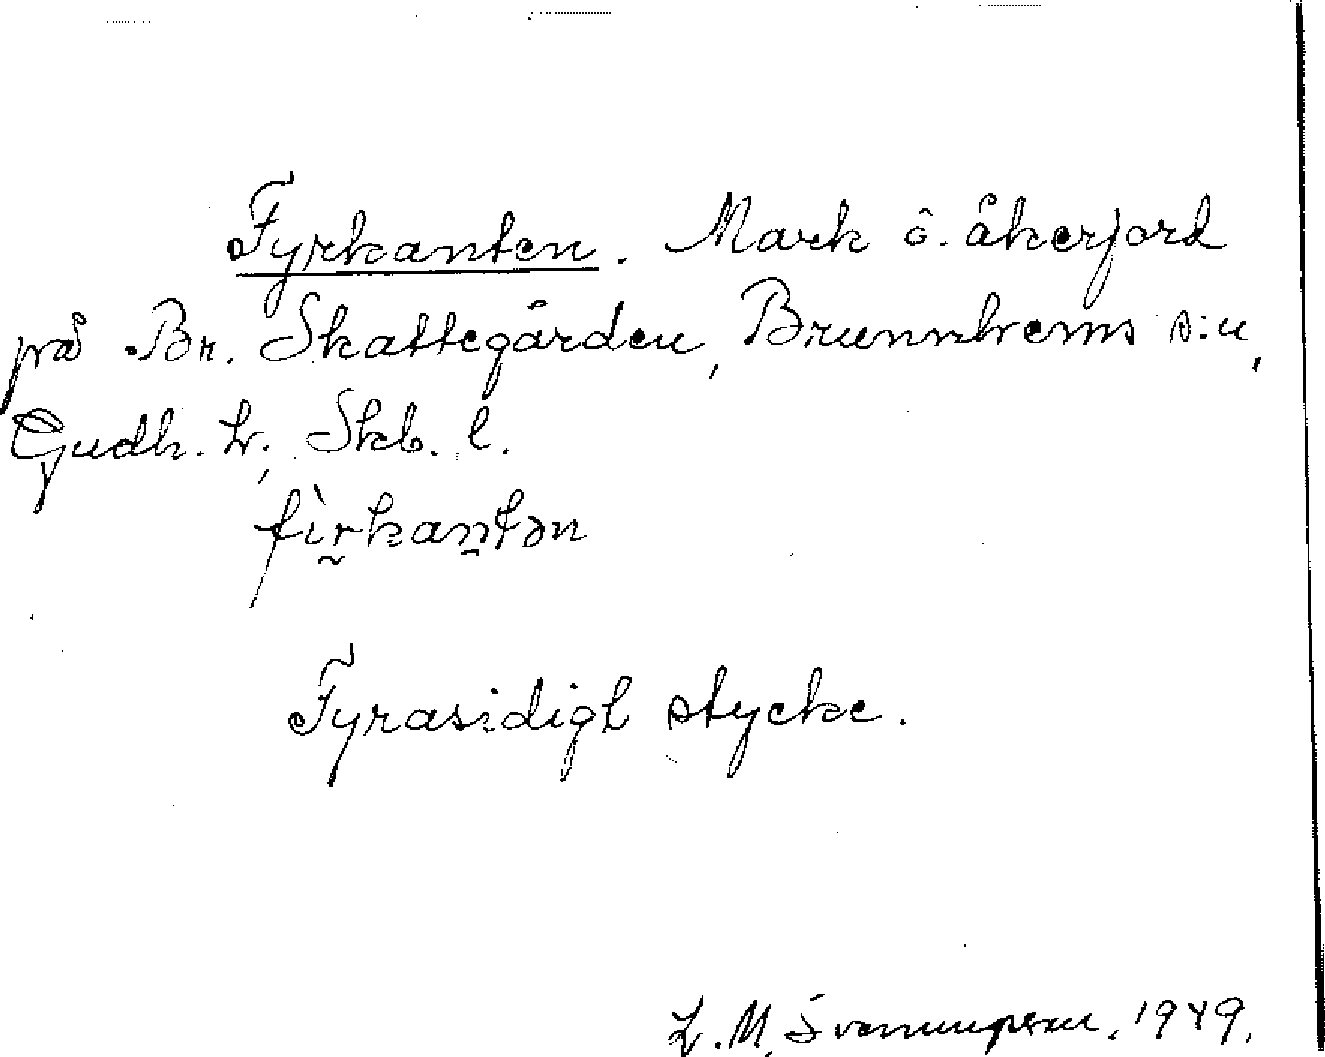 Fyrkanten. Mark o. åkerjord
på Br. Skattegården, Brunnhems s:n,
Gudh. h., Skb. l.
fìr̰kaṉtən
Fyrasidigt stycke.
L. M. Svenungsson, 1949.